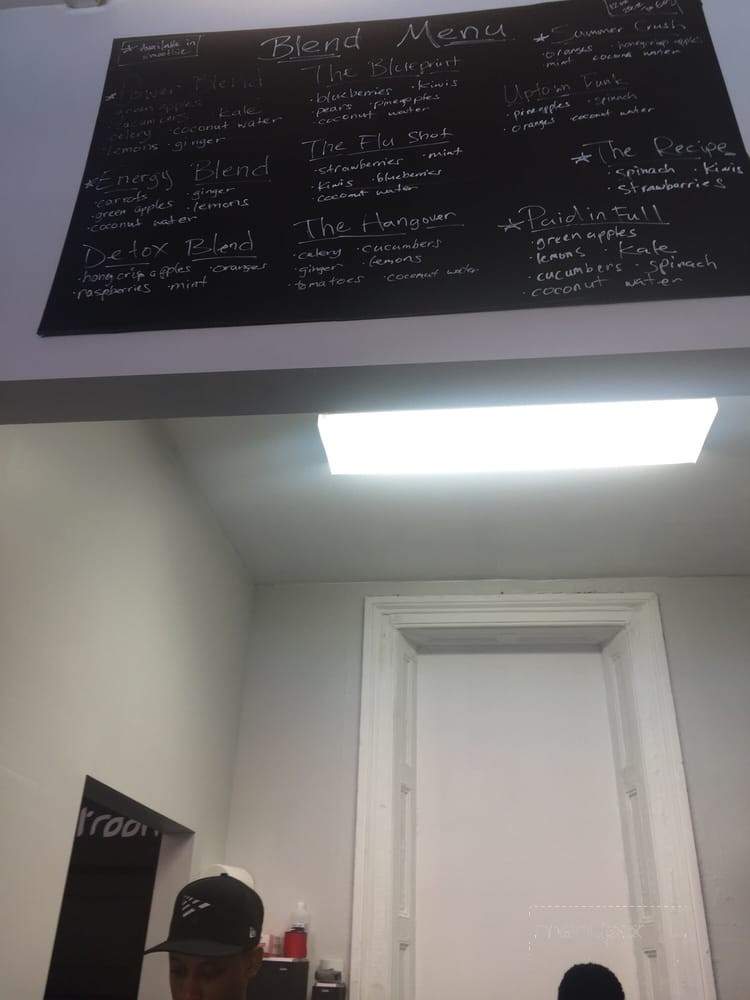 * Available in
smoothie
Blend Menu
* Power Blend
green apples
cucumbers · kale
celery · coconut water
lemons · ginger
* Energy Blend
· carrots · ginger
· green apples · lemons
· coconut water
Detox Blend
· honeycrisp apples · oranges
· raspberries · mint
The Blueprint
· blueberries · kiwis
· pears · pineapples
· coconut water
The Flu Shot
· strawberries · mint
· kiwis · blueberries
coconut water
The Hangover
· celery · cucumbers
ginger · lemons
· tomatoes · coconut water
* Summer Crush
oranges · honeycrisp apples
mint coconut water
Uptown Funk
· pineapples · spinach
· oranges coconut water
* The Recipe
· spinach · kiwis
· strawberries
* Paid in Full
· green apples
· lemons · Kale
· cucumbers · spinach
· coconut water
menupix